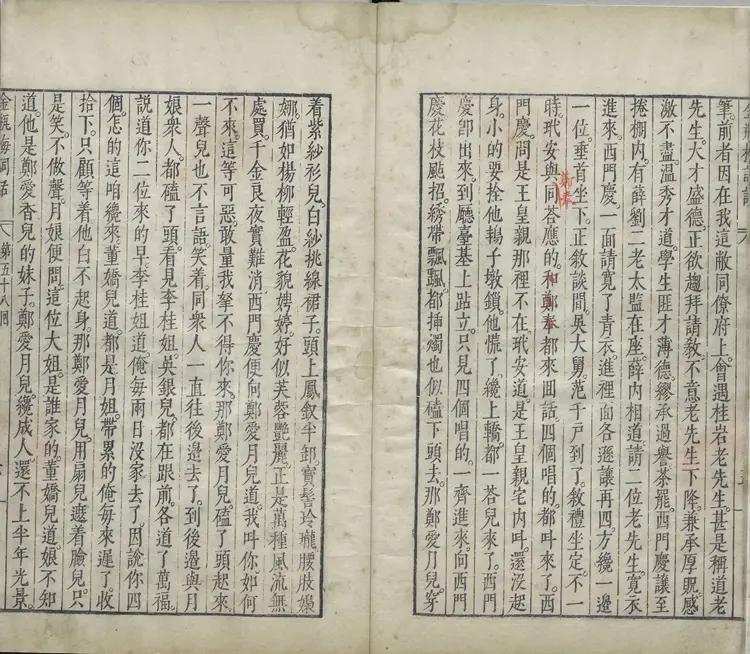 筆。前者因在我這敝同僚府上。會遇桂岩老先生。甚是稱道老
先生。大才盛德。正欲趨拜請教。不意老先生下降。兼承厚貺感
激不盡。温秀才道。學生匪才薄德。繆承過譽。茶罷。西門慶讓至
捲棚內。有薛劉二老太監在座。薛內相道。請二位老先生寬衣
進來。西門慶一面請寬了青衣。進裡面。各遜讓再四。方纔一邊
一位。垂首坐下。正敘談間。吳大舅范千户到了。敘禮坐定。不一
時。玳安與同荅應的和鄭奉都來囬話。四個唱的。都叫來了。西
門慶問是王皇親那裡不在。玳安道。是王皇親宅內呌。還沒起
身。小的要拴他鴇子墩鎖。他慌了。纔上轎。都一荅兒來了。西門
慶卽出來。到廳臺基上跕立。只見四個唱的。一齊進來。向西門
慶花枝颭招。綉帶飄飄。都揷燭也似磕下頭去。那鄭愛月兒。穿
着紫紗衫兒。白紗挑線裙子。頭上鳳釵半卸。寶髻玲瓏。腰肢嬝
娜。猶如楊柳輕盈。花貌娉婷。好似芙蓉艷麗。正是萬種風流無
處買。千金良夜實難消。西門慶便向鄭愛月兒道。我叫你如何
不來。這等可惡。敢量我拏不得你來。那鄭愛月兒。磕了頭起來
一聲兒也不言語。笑着。同衆人一直往後邊去了。到後邊與月
娘衆人。都磕了頭。看見李桂姐。吳銀兒。都在跟前。各道了萬福。
説道你二位來的早。李桂姐道。俺每兩日沒家去了。因說你四
個。怎的這咱纔來。董嬌兒道。都是月姐。帶累的俺每來遲了。收
拾下。只顧等着他。白不起身。那鄭愛月兒。用扇兒遮着臉兒。只
是笑。不做聲。月娘便問。這位大姐。是誰家的。董嬌兒道。娘不知
道。他是鄭愛香兒的妹子。鄭愛月兒。纔成人。還不上半年光景。
金瓶梅詞話
第五十八囬